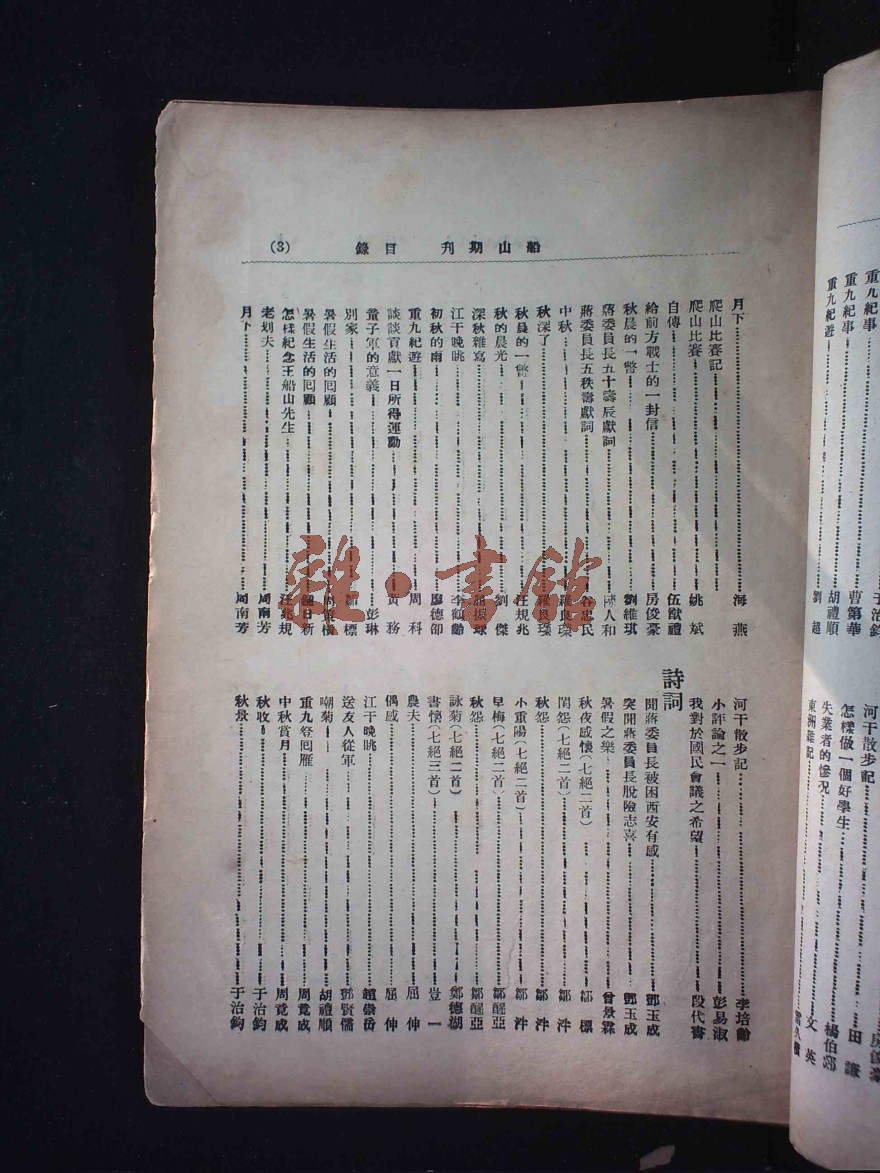 船山期刊　目錄　(3)
月下 海燕
爬山比賽記
爬山比賽 姚斌
自傳 伍猷禮
給前方戰士的一封信 房俊豪
秋晨的一瞥 劉維琪
蔣委員長五十壽辰獻詞 人和
蔣委員長五秩壽獻詞 谷忠民
中秋 羅良璪
秋深了 羅良璪
秋晨的一瞥 汪規兆
秋的晨光 劉傑
深秋雜寫 振球
江干晚眺 李頷齡
初秋的雨 廖德邵
重九紀遊 周科
談談貢獻一日所得運動 黃務
童子軍的意義 彭琳
別家 鄒標
暑假生活的回顧 周策橫
暑假生活的回顧 日新
怎樣紀念王船山先生 汪兆規
老划夫 周南芳
月下 周南芳
河干散步記 李培齡
小評論之一 彭易淑
我對於國民會議之希望 段代書
詩詞
聞蔣委員長被困西安有感 鄧玉成
突聞蔣委員長脫險志喜 鄧玉成
暑假之樂 曾景霖
秋夜感懷(七絕二首) 鄒標
閨怨(七絕二首) 鄒泮
秋怨 鄒泮
小重陽(七絕二首) 鄒泮
早梅(七絕二首) 鄒醒亞
秋怨 鄒醒亞
詠菊(七絕二首) 鄭德湖
書懷(七絕三首) 豈一
農夫 屈伸
偶感 屈伸
江干晚眺 趙崇岳
送友人從軍 鄧賢儒
嘲菊 胡禮順
重九登回雁 周竟成
中秋賞月 周竟成
秋收 于治鈞
秋景 于治鈞
于治鈞
重九紀事 曹第華
重九紀事 胡禮順
重九紀遊 劉超
河干散步記
怎樣做一個好學生 田謙
失業者的慘況 楊伯郊
東洲雜記 文英
雜·書館